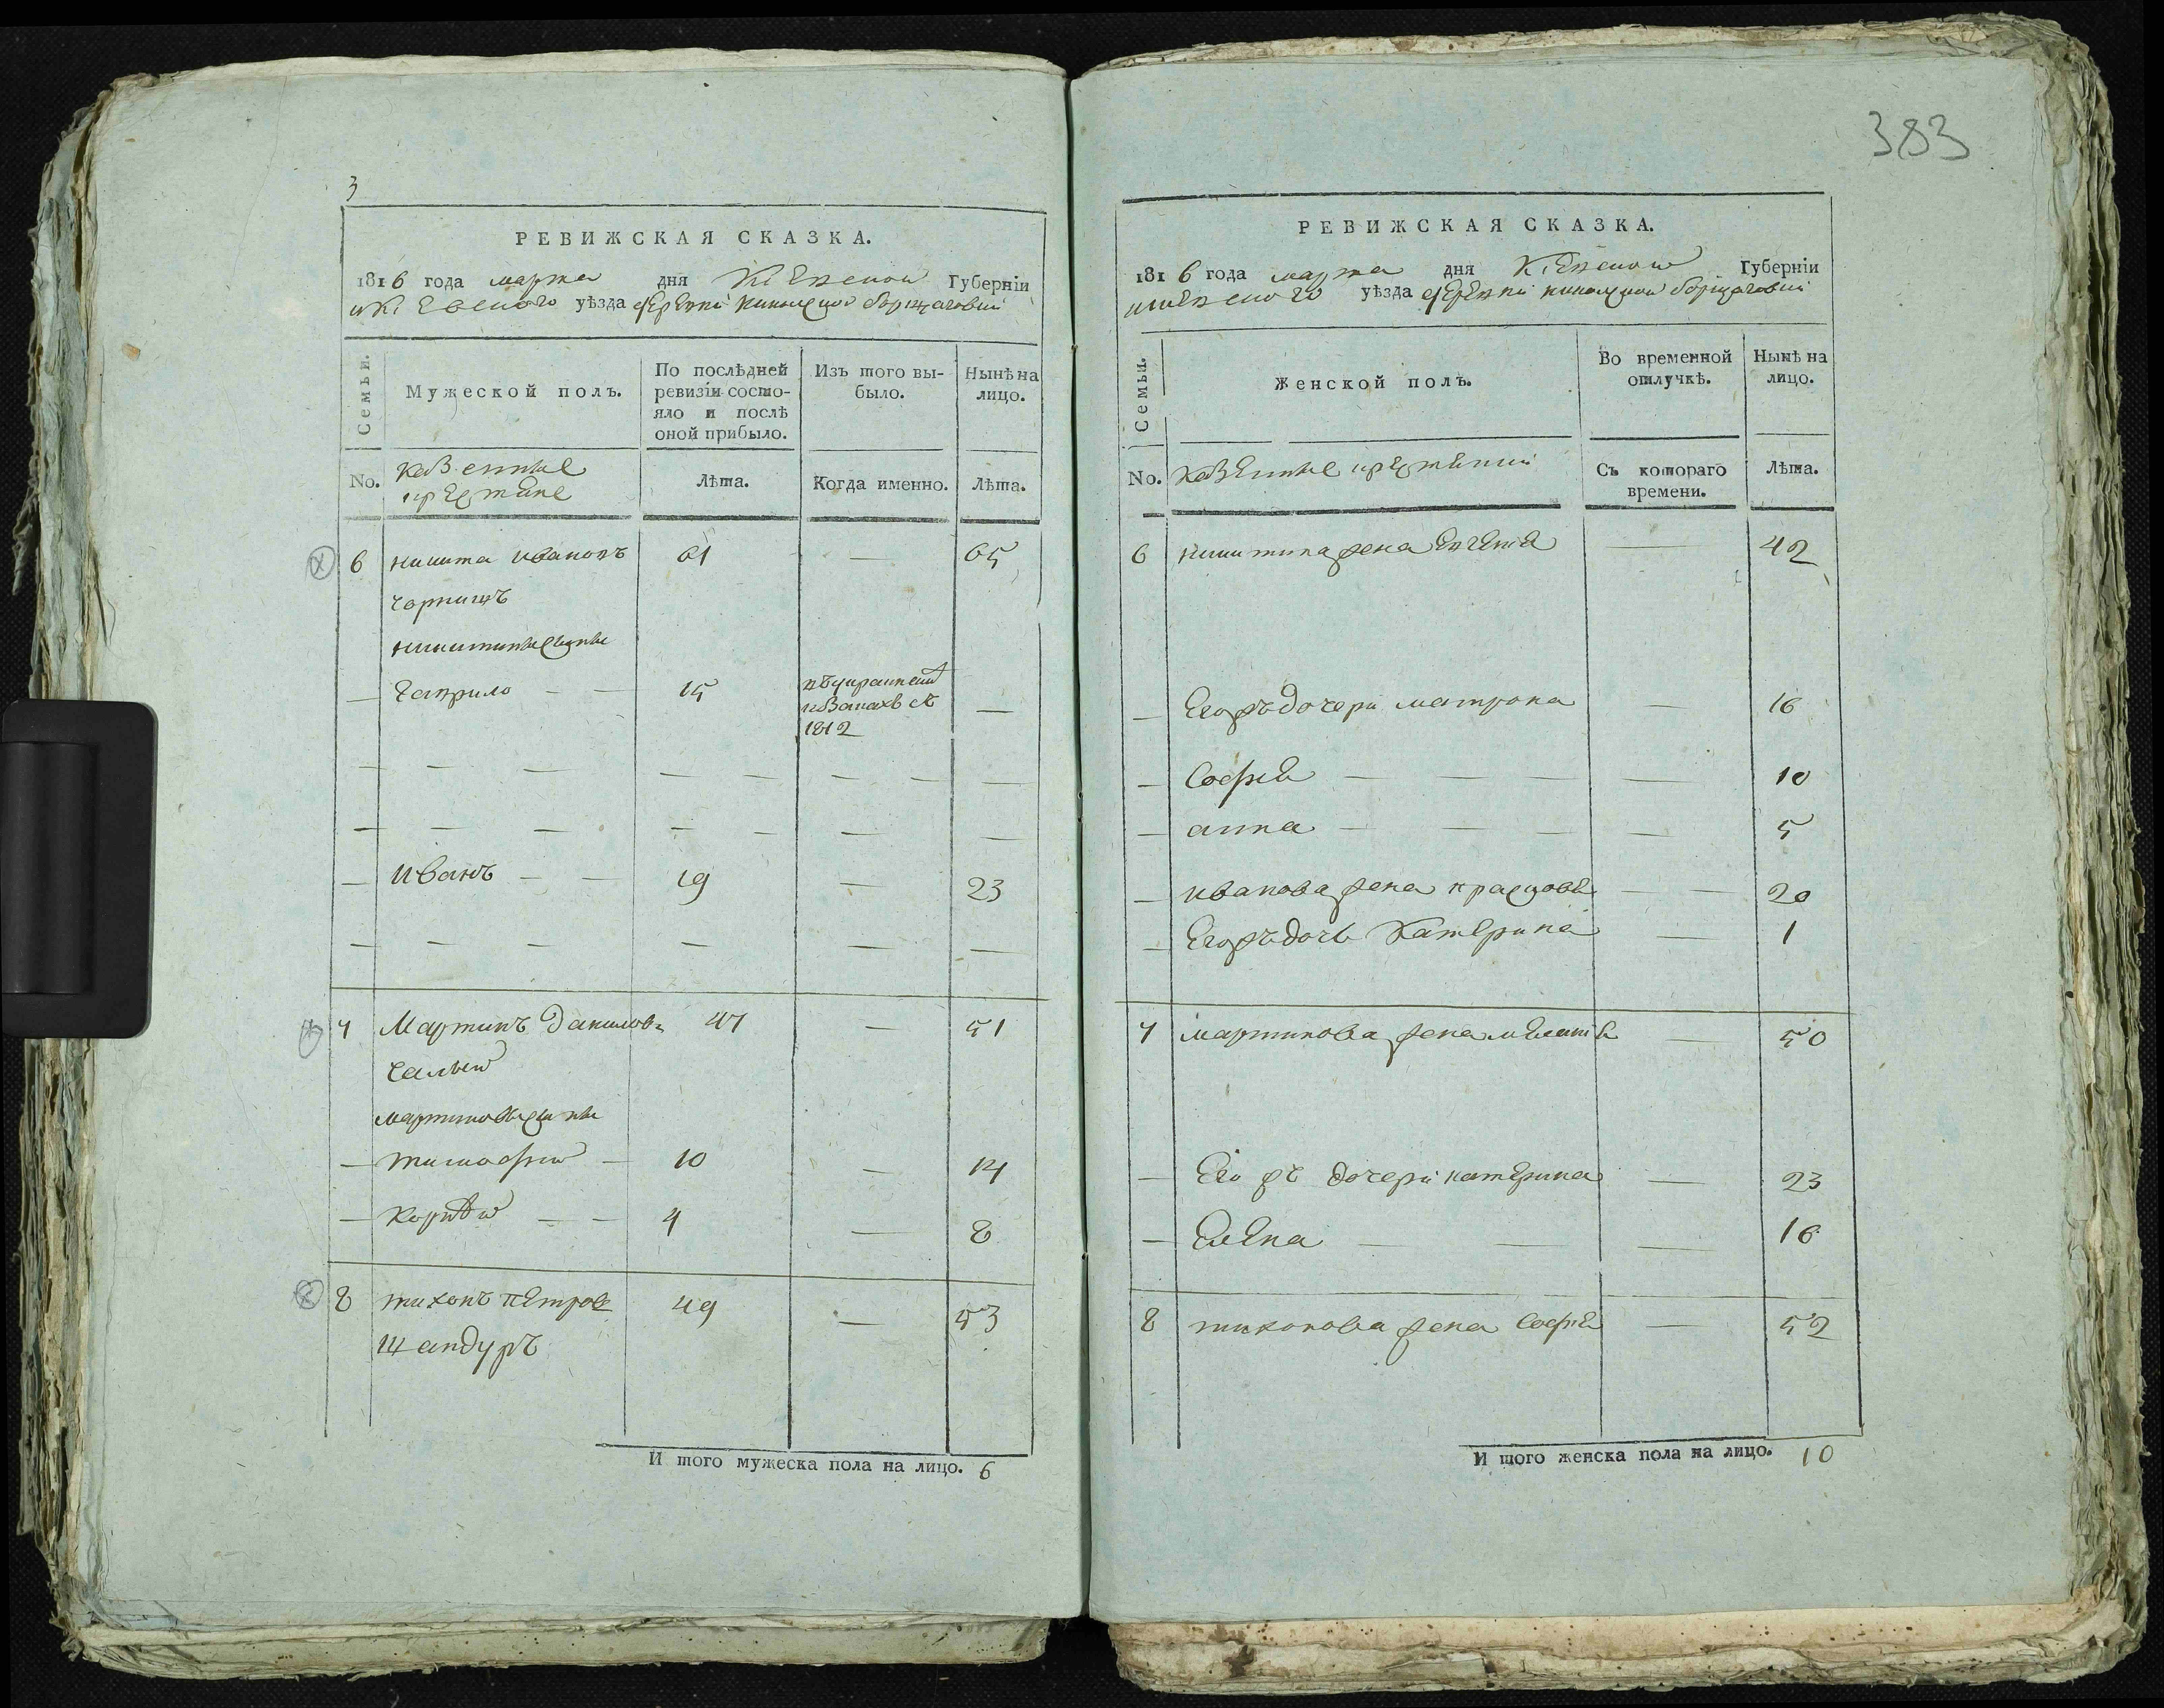 383
3
РЕВИЖСКАЯ СКАЗКА.
1816 года марта дня Кіевской Губерніи
Кіевского уѣзда деревни Никольской борщаговки
Семьи.
Мужеской полъ.
По послѣдней ревизіи состояло и послѣ оной прибыло.
Изъ того выбыло.
Нынѣ на лицо.
No.
казенные
крестяне
Лѣта.
Когда именно.
Лѣта.
6 никита Ивановъ 61 — 65
никитины сыны
— Гаврило — — 15 —
козакахъ съ
1812
— Иванъ — — 19 — 23
7 Мартинъ Данилов 47 — 51
Галый
мартиновы сыны
— тимофей — 10 — 14
— Корнѣй — — 4 — 8
8 тихонъ петров 49 — 53
Шандуръ
И того мужеска пола на лицо. 6
РЕВИЖСКАЯ СКАЗКА.
1816 года марта дня Кіевской Губерніи
кіевского уѣзда деревни никольской борщаговки
Семьи.
Женской полъ.
Во временной отлучкѣ.
Нынѣ на лицо.
No.
казенные крестянки
Съ котораго времени.
Лѣта.
6 никитина жена Евгенія — 42
— Егожъ дочери матрона — 16
— Софія — — — — 10
— анна — — — — 5
— иванова жена — — 20
— Егожъ дочь Катерина — 1
7 мартинова жена — 50
— Его жъ дочери катерина — 23
— Елена — — — 16
8 тихонова жена Софія — 52
И того женска пола на лицо. 10